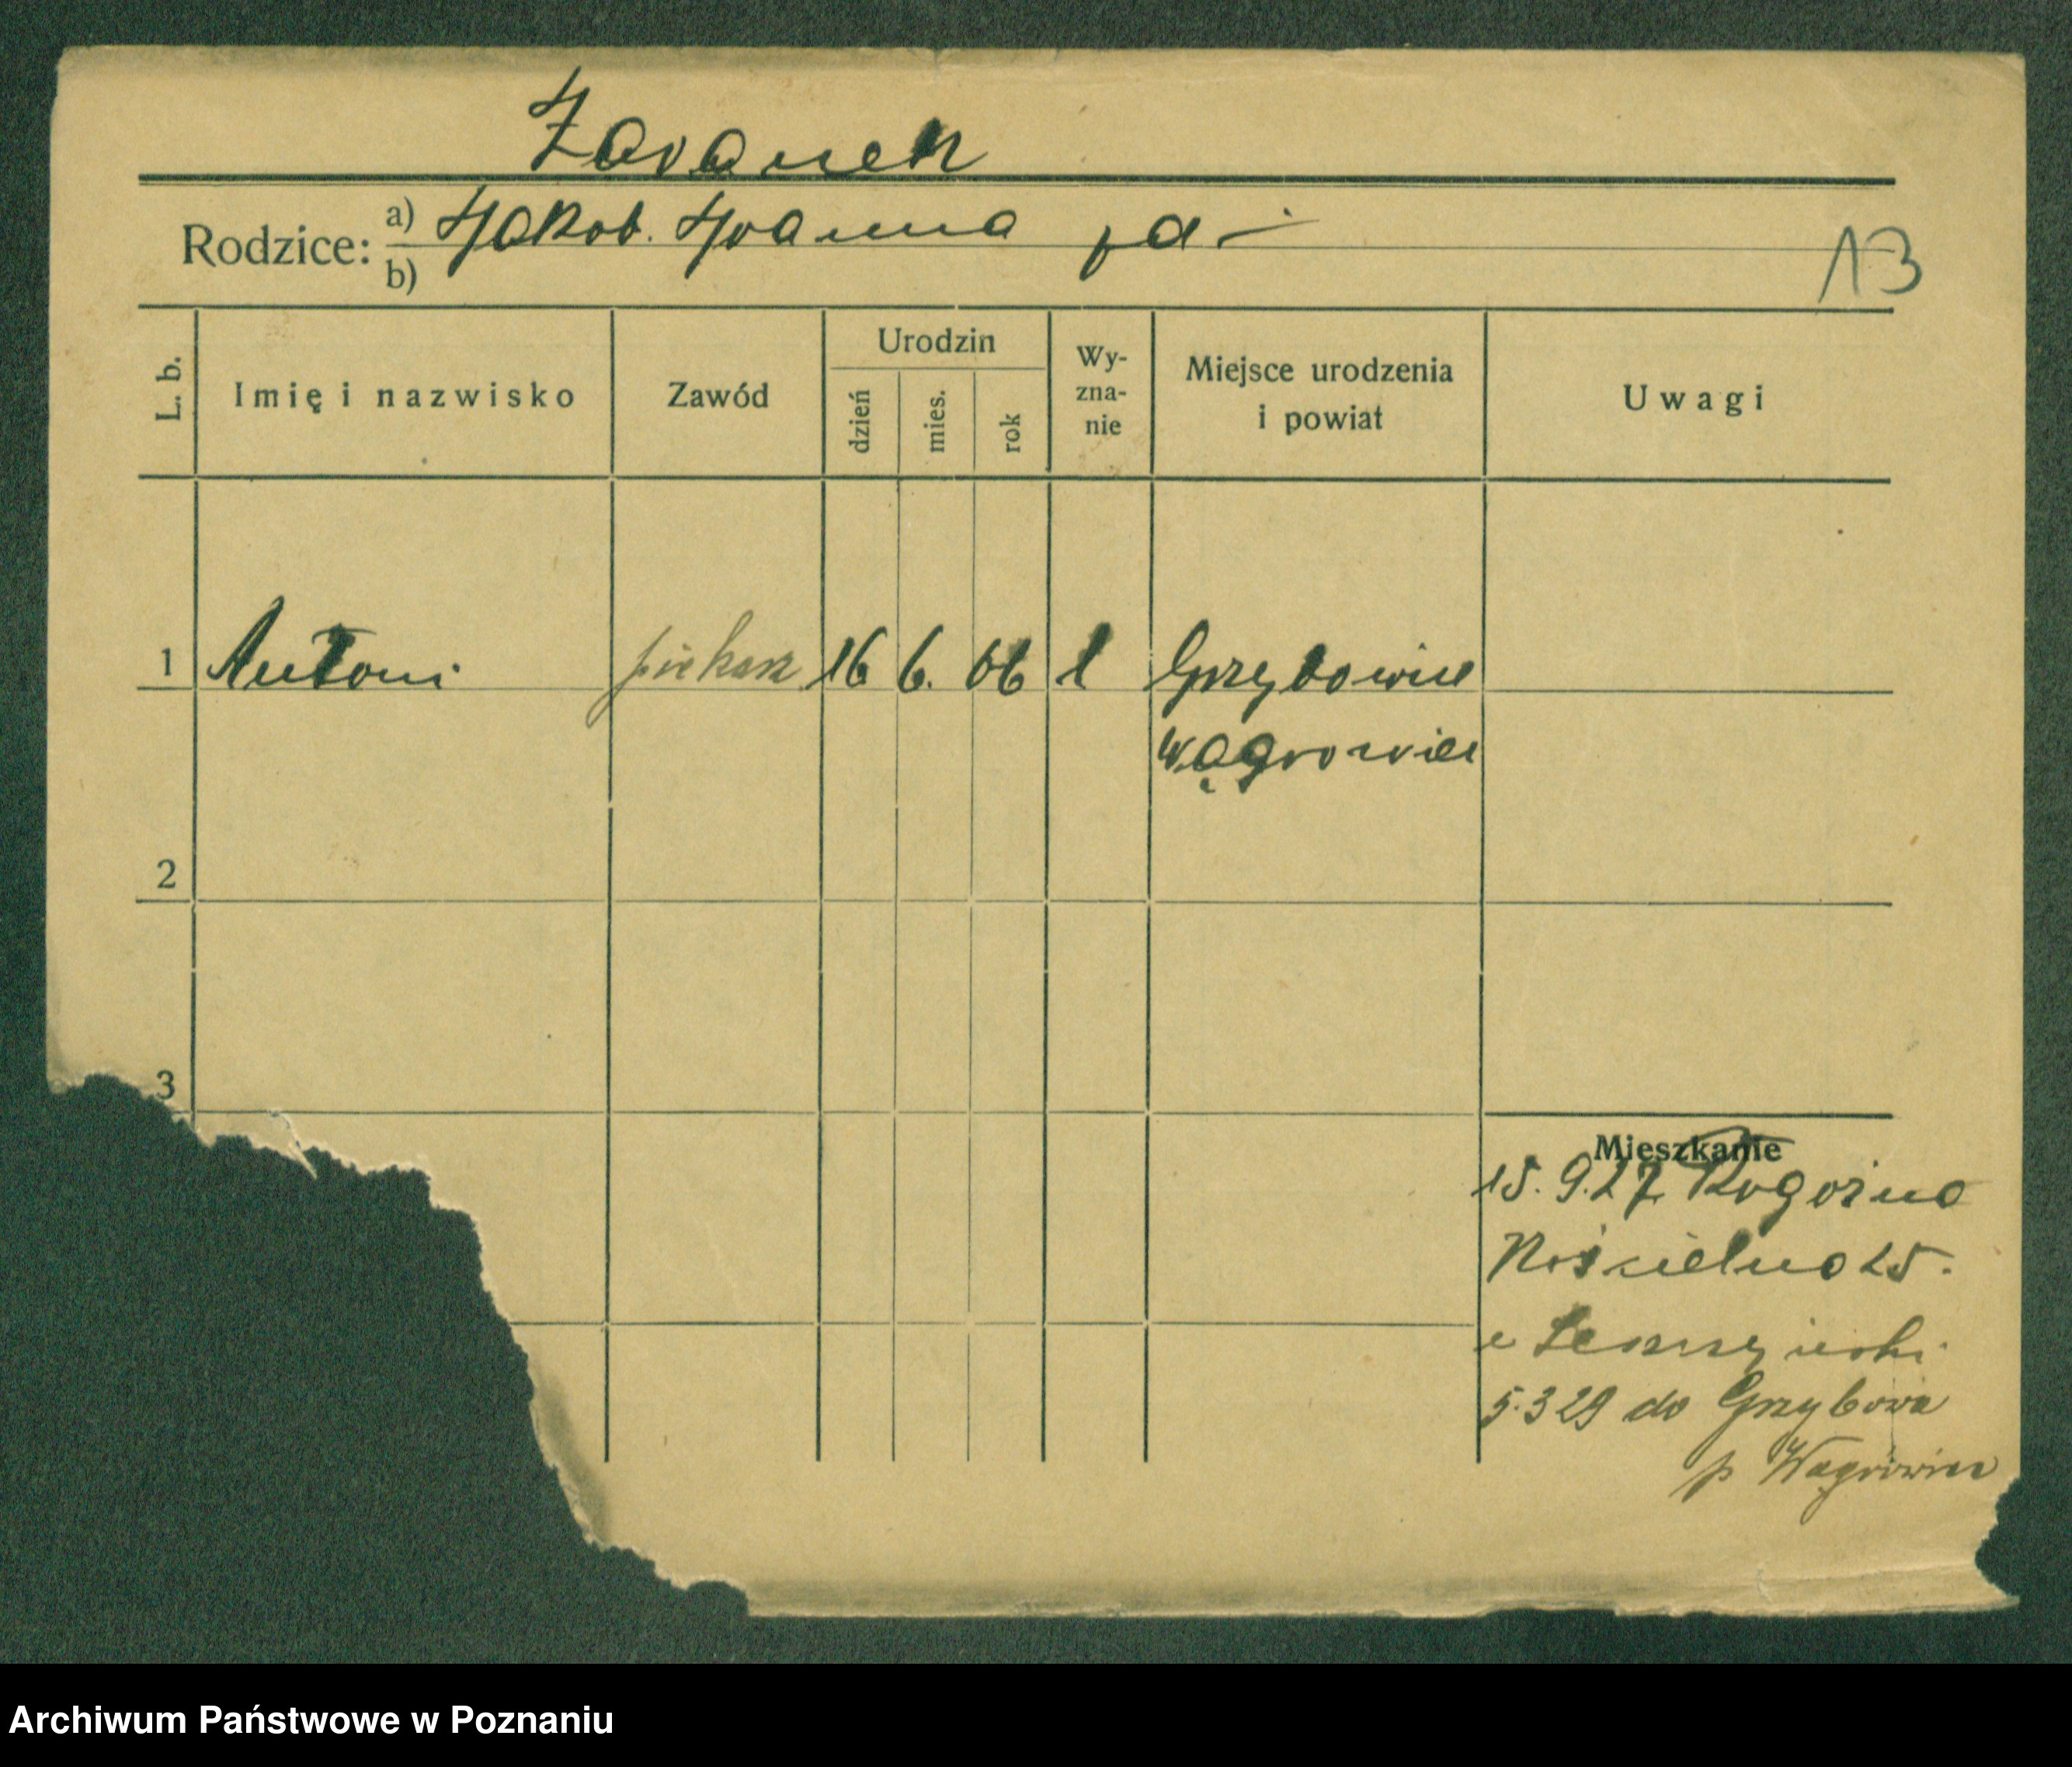 Rodzice: a) Jakob. Joanna
b)
13
L. b.
Imię i nazwisko
Zawód
Urodzin
dzień
mies.
rok
Wy-
zna-
nie
Miejsce urodzenia
i powiat
Uwagi
1 Antoni piekarz 16 6. 06 Grzybowice
Wągrowiec
2
3
Mieszkanie
15. 9. 27 Rogoźno
Kościelna 25.
5.3 29 do Grzybowa
p Wągrowiec
Archiwum Państwowe w Poznaniu